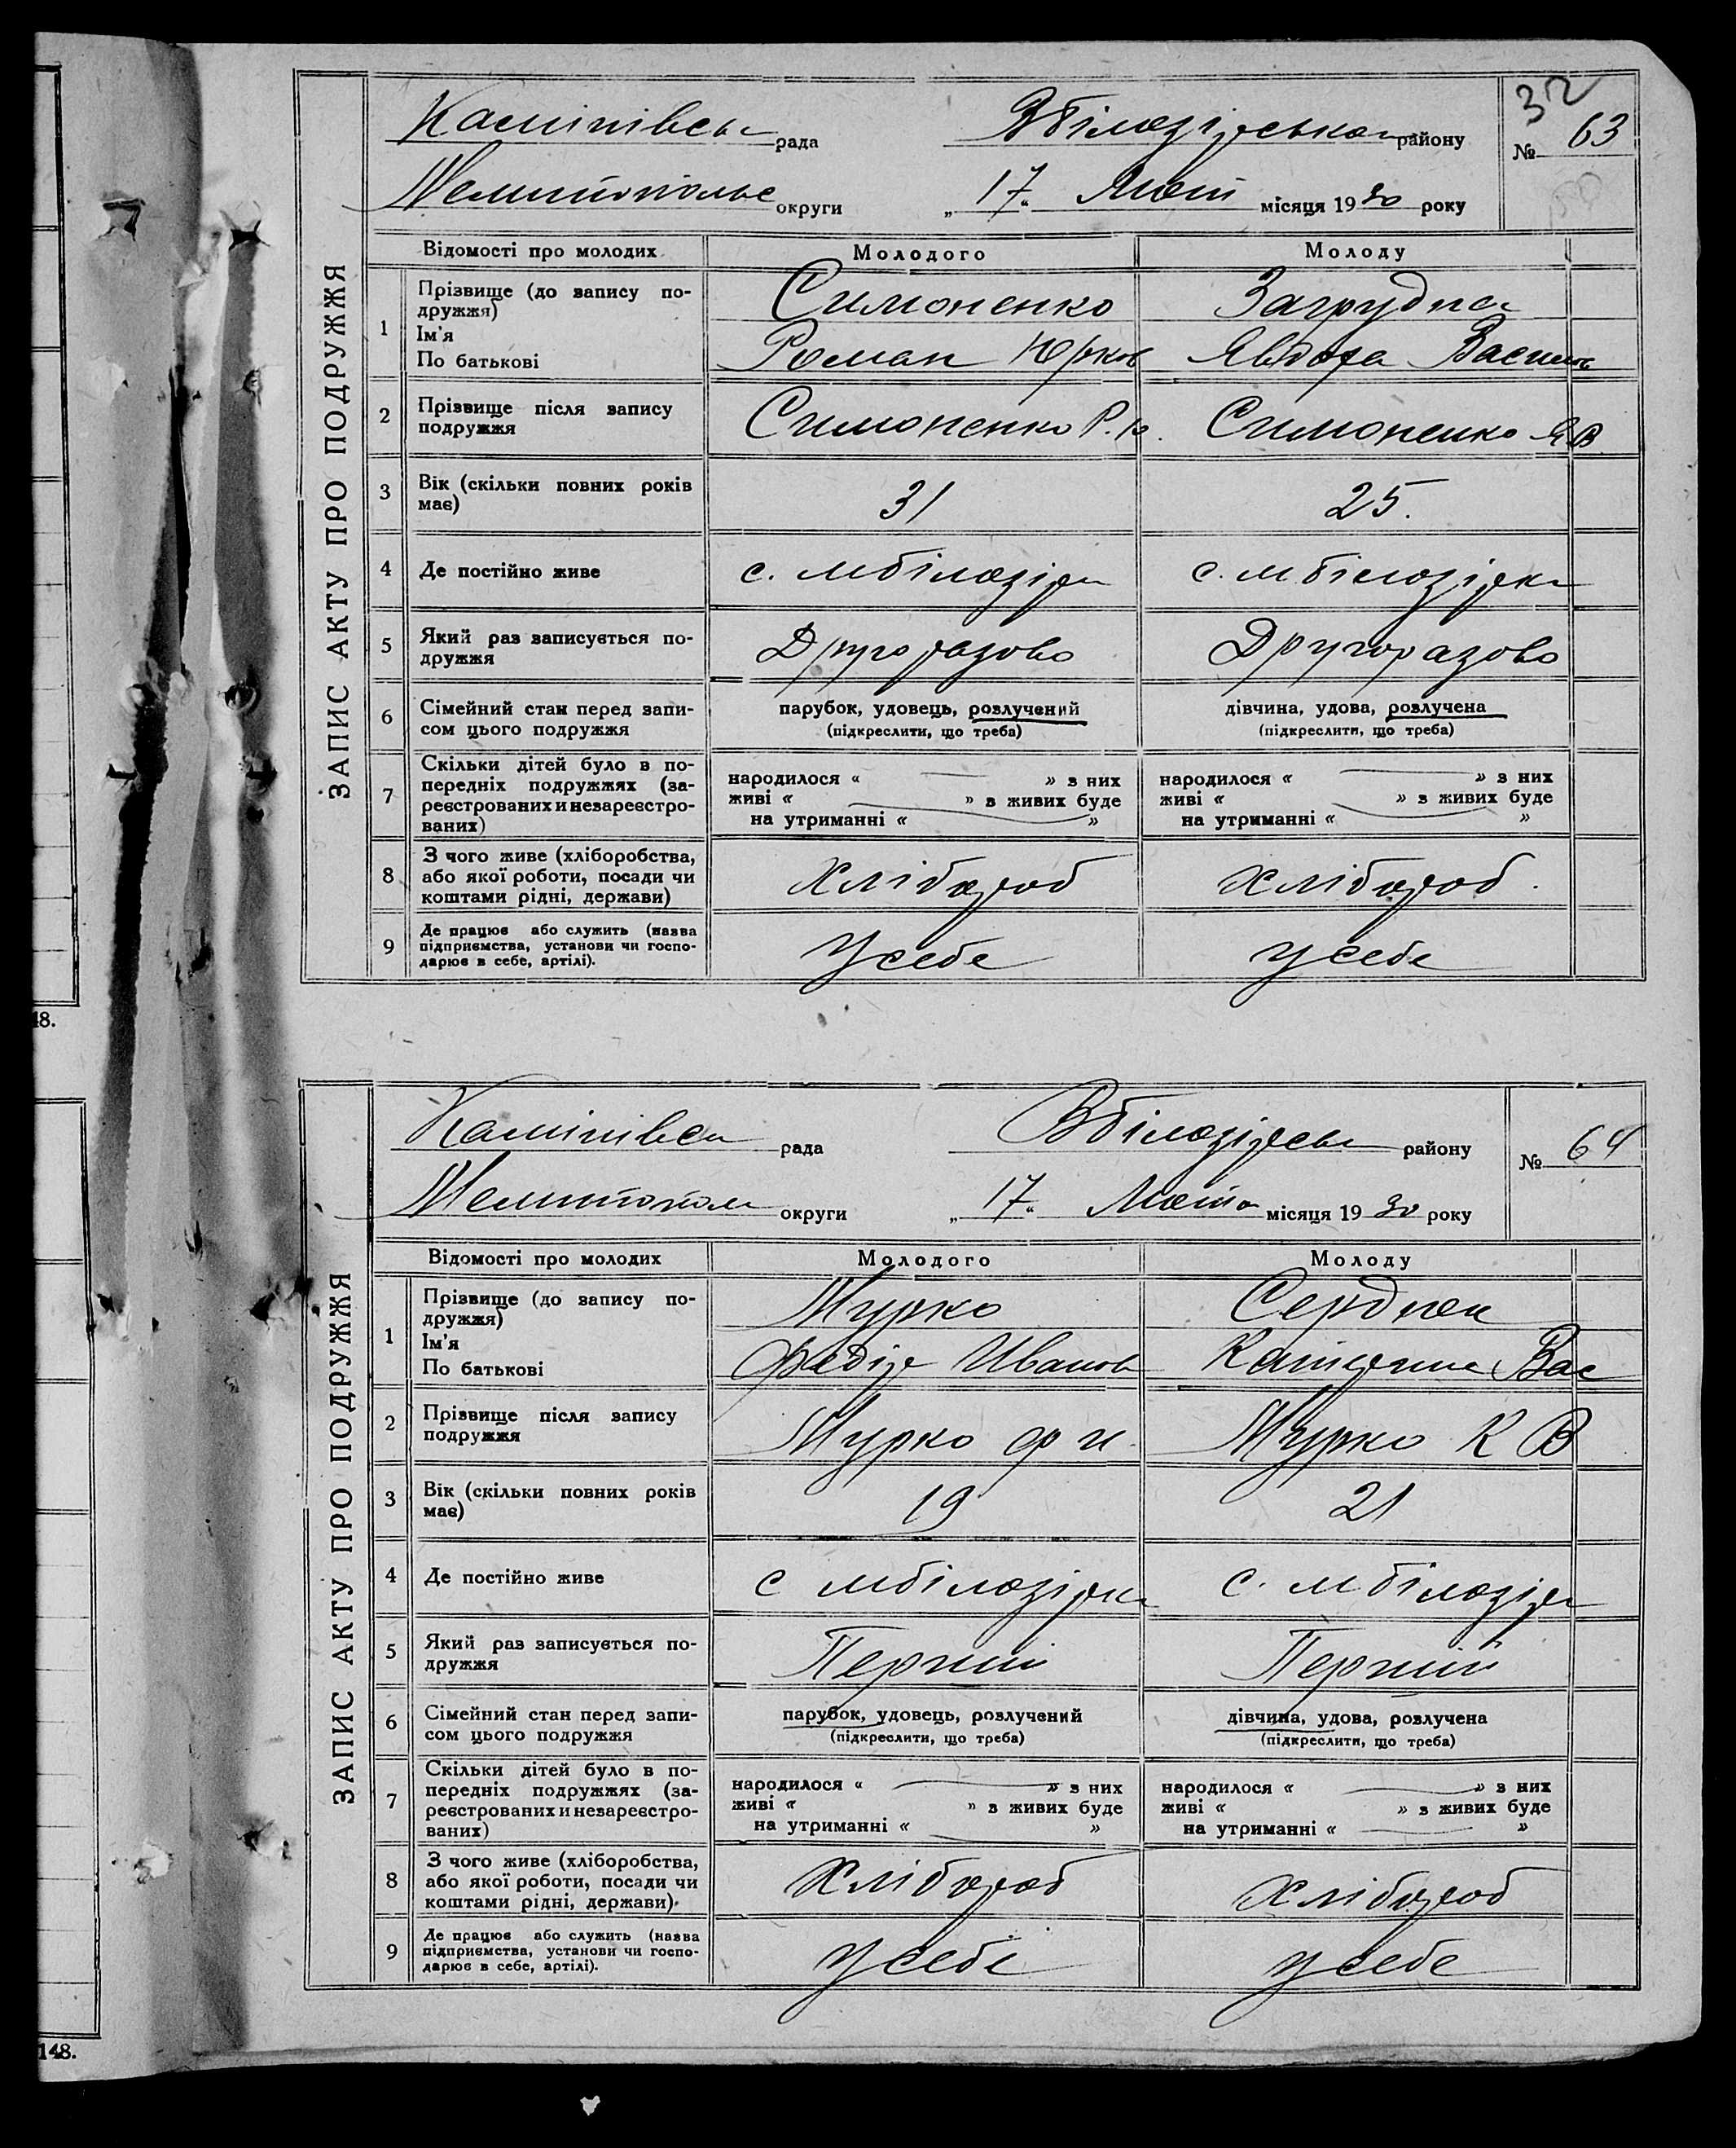 32
Камінівськ рада Вбілозірськои району № 63
Мелитопольс округи „17“ Лют місяця 1930 року
ЗАПИС АКТУ ПРО ПОДРУЖЖЯ
Відомості про молодих Молодого Молоду
1 Прізвище (до запису по-
дружжя) Симоненко Загрудна
Ім'я
По батькові Роман Юрков Явдоха Васил
2 Прізвище після запису
подружжя Симоненко Р. Ю. Симоненко Я В
3 Вік (скільки повних років
має) 31 25.
4 Де постійно живе с. мбілозірк с. м білозірка
5 Який раз записується по-
дружжя Другоразово Другоразово
6 Сімейний стан перед запи-
сом цього подружжя
парубок, удовець, розлучений дівчина, удова, розлучена
(підкреслити, що треба) (підкреслити, що треба)
7 Скільки дітей було в по-
передніх подружжях (за-
реєстрованих и незареєстро-
ваних)
народилося « — » з них народилося « — » з них
живі « — » з живих буде живі « — » з живих буде
на утриманні « » на утриманні « »
8 З чого живе (хліборобства,
або якої роботи, посади чи
коштами рідні, держави) хлібороб хлібороб.
9 Де працює або служить (назва
підприємства, установи чи госпо-
дарює в себе, артілі). У себе у себе
48.
Камінівськ рада Вбілозірськ району № 64
Мелитополь округи „17“ Люта місяця 1930 року
ЗАПИС АКТУ ПРО ПОДРУЖЖЯ
Відомості про молодих Молодого Молоду
1 Прізвище (до запису по-
дружжя) Мурко Сердюк
Ім'я
По батькові Федір Иванов Катерина Вас
2 Прізвище після запису
подружжя Мурко Ф и. Мурко К В
3 Вік (скільки повних років
має) 19 21
4 Де постійно живе с мбілозірка с. м білозірк
5 Який раз записується по-
дружжя Перший Перший
6 Сімейний стан перед запи-
сом цього подружжя
парубок, удовець, розлучений дівчина, удова, розлучена
(підкреслити, що треба) (підкреслити, що треба)
7 Скільки дітей було в по-
передніх подружжях (за-
реєстрованих и незареєстро-
ваних)
народилося « — » з них народилося « — » з них
живі « » з живих буде живі « » з живих буде
на утриманні « — » на утриманні « — »
8 З чого живе (хліборобства,
або якої роботи, посади чи
коштами рідні, держави). Хлібороб хлібороб
9 Де працює або служить (назва
підприємства, установи чи госпо-
дарює в себе, артілі). у себе у себе
148.